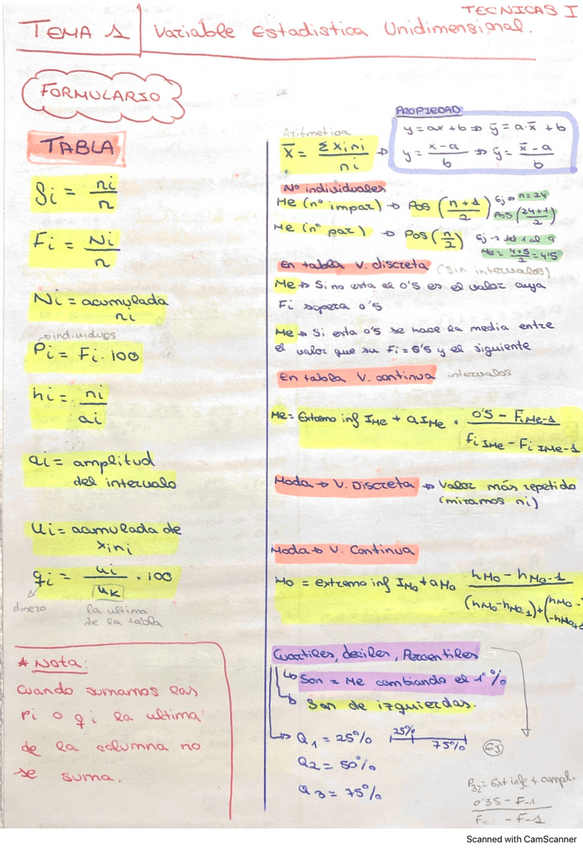 TECNICAS I
TEMA 1 Variable Estadistica Unidimensional.
FORMULARIO
TABLA
fi = ni / n
Fi = Ni / n
Ni = acumulada
ni
individuos
Pi = Fi · 100
hi = ni / ai
ai = amplitud
del intervalo
ui = acumulada de
xini
qi = ui / uk · 100
dinero
la ultima
de la tabla
* Nota:
Cuando sumamos las
Pi o qi la ultima
de la columna no
se suma.
PROPIEDAD:
y = ax + b => ȳ = a·x̄ + b
y = x-a / b => ȳ = x̄-a / b
Aritmetica
X̄ = Σxini / ni
Nº individuales
Me (nº impar) → Pos (n+1 / 2) Ej → n=24
Pos (24+1 / 2)
Me (nº par) → Pos (n / 2) Ej → del 1 al 9
Me = 4+5 / 2 = 4'5
En tabla V. discreta (sin intervalos)
Me → Si no esta el 0'5 es el valor cuya
Fi supera 0'5
Me → Si esta 0'5 se hace la media entre
el valor que su Fi = 0'5 y el siguiente
En tabla V. continua intervalos
Me = Extremo inf IMe + aIMe · 0'5 - FiMe-1 / Fi IMe - Fi IMe-1
Moda → V. Discreta → Valor más repetido
(miramos ni)
Moda → V. Continua
Mo = extremo inf IMo + aMo hMo - hMo-1 / (hMo-hMo-1)+(hMo-hMo+
Cuartiles, deciles, Percentiles
Son = Me cambiando el 1º %
Son de izquierdas.
Q1 = 25% 25% 75% EJ
Q2 = 50%
Q3 = 75%
P32 = Ext inf + ampl.
0'35 - F-1
F - F-1
Scanned with CamScanner